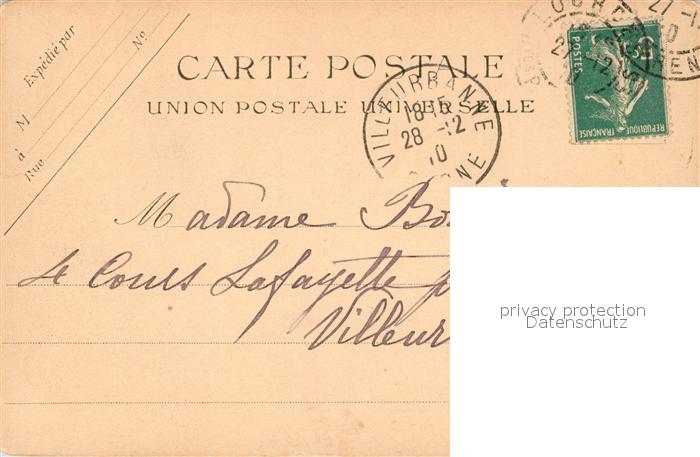 Expédié par
No
M
à
Rue
CARTE POSTALE
UNION POSTALE UNIVERSELLE
VILLEURBANNE
18
28 -12
10
POSTES
REPUBLIQUE FRANÇAISE
Madame
4 Cours Lafayette
privacy protection
Datenschutz